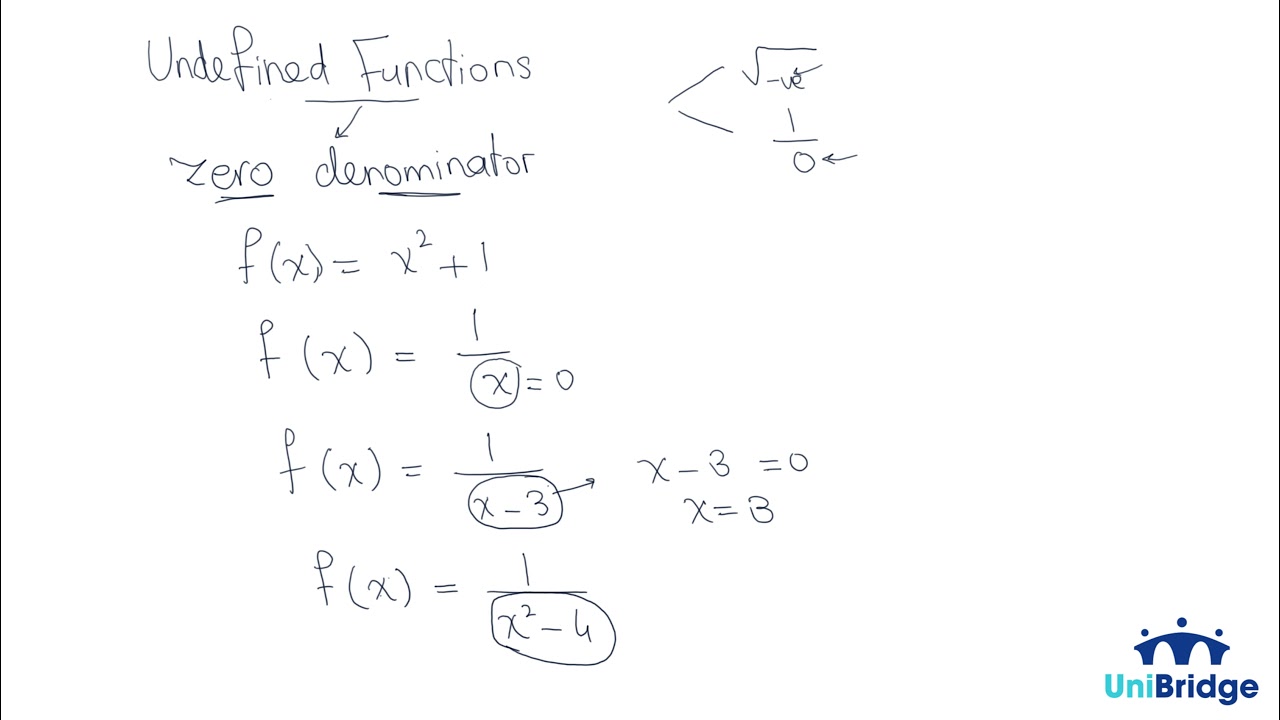 Undefined Functions
√-ve
1/0
zero denominator
f(x) = x² + 1
f(x) = 1/x = 0
f(x) = 1/(x - 3)
x - 3 = 0
x = 3
f(x) = 1/(x² - 4)
UniBridge